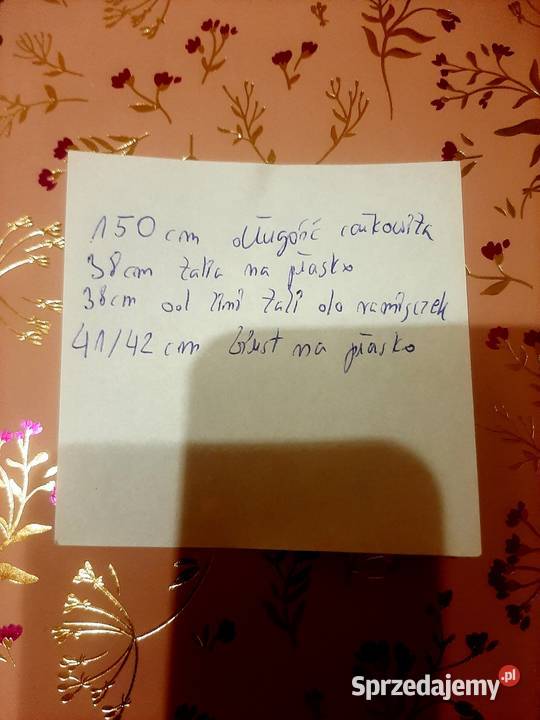 150 cm długość całkowita
38cm talia na płasko
38cm od lini tali do ramiączek
41/42 cm biust na płasko
Sprzedajemy.pl